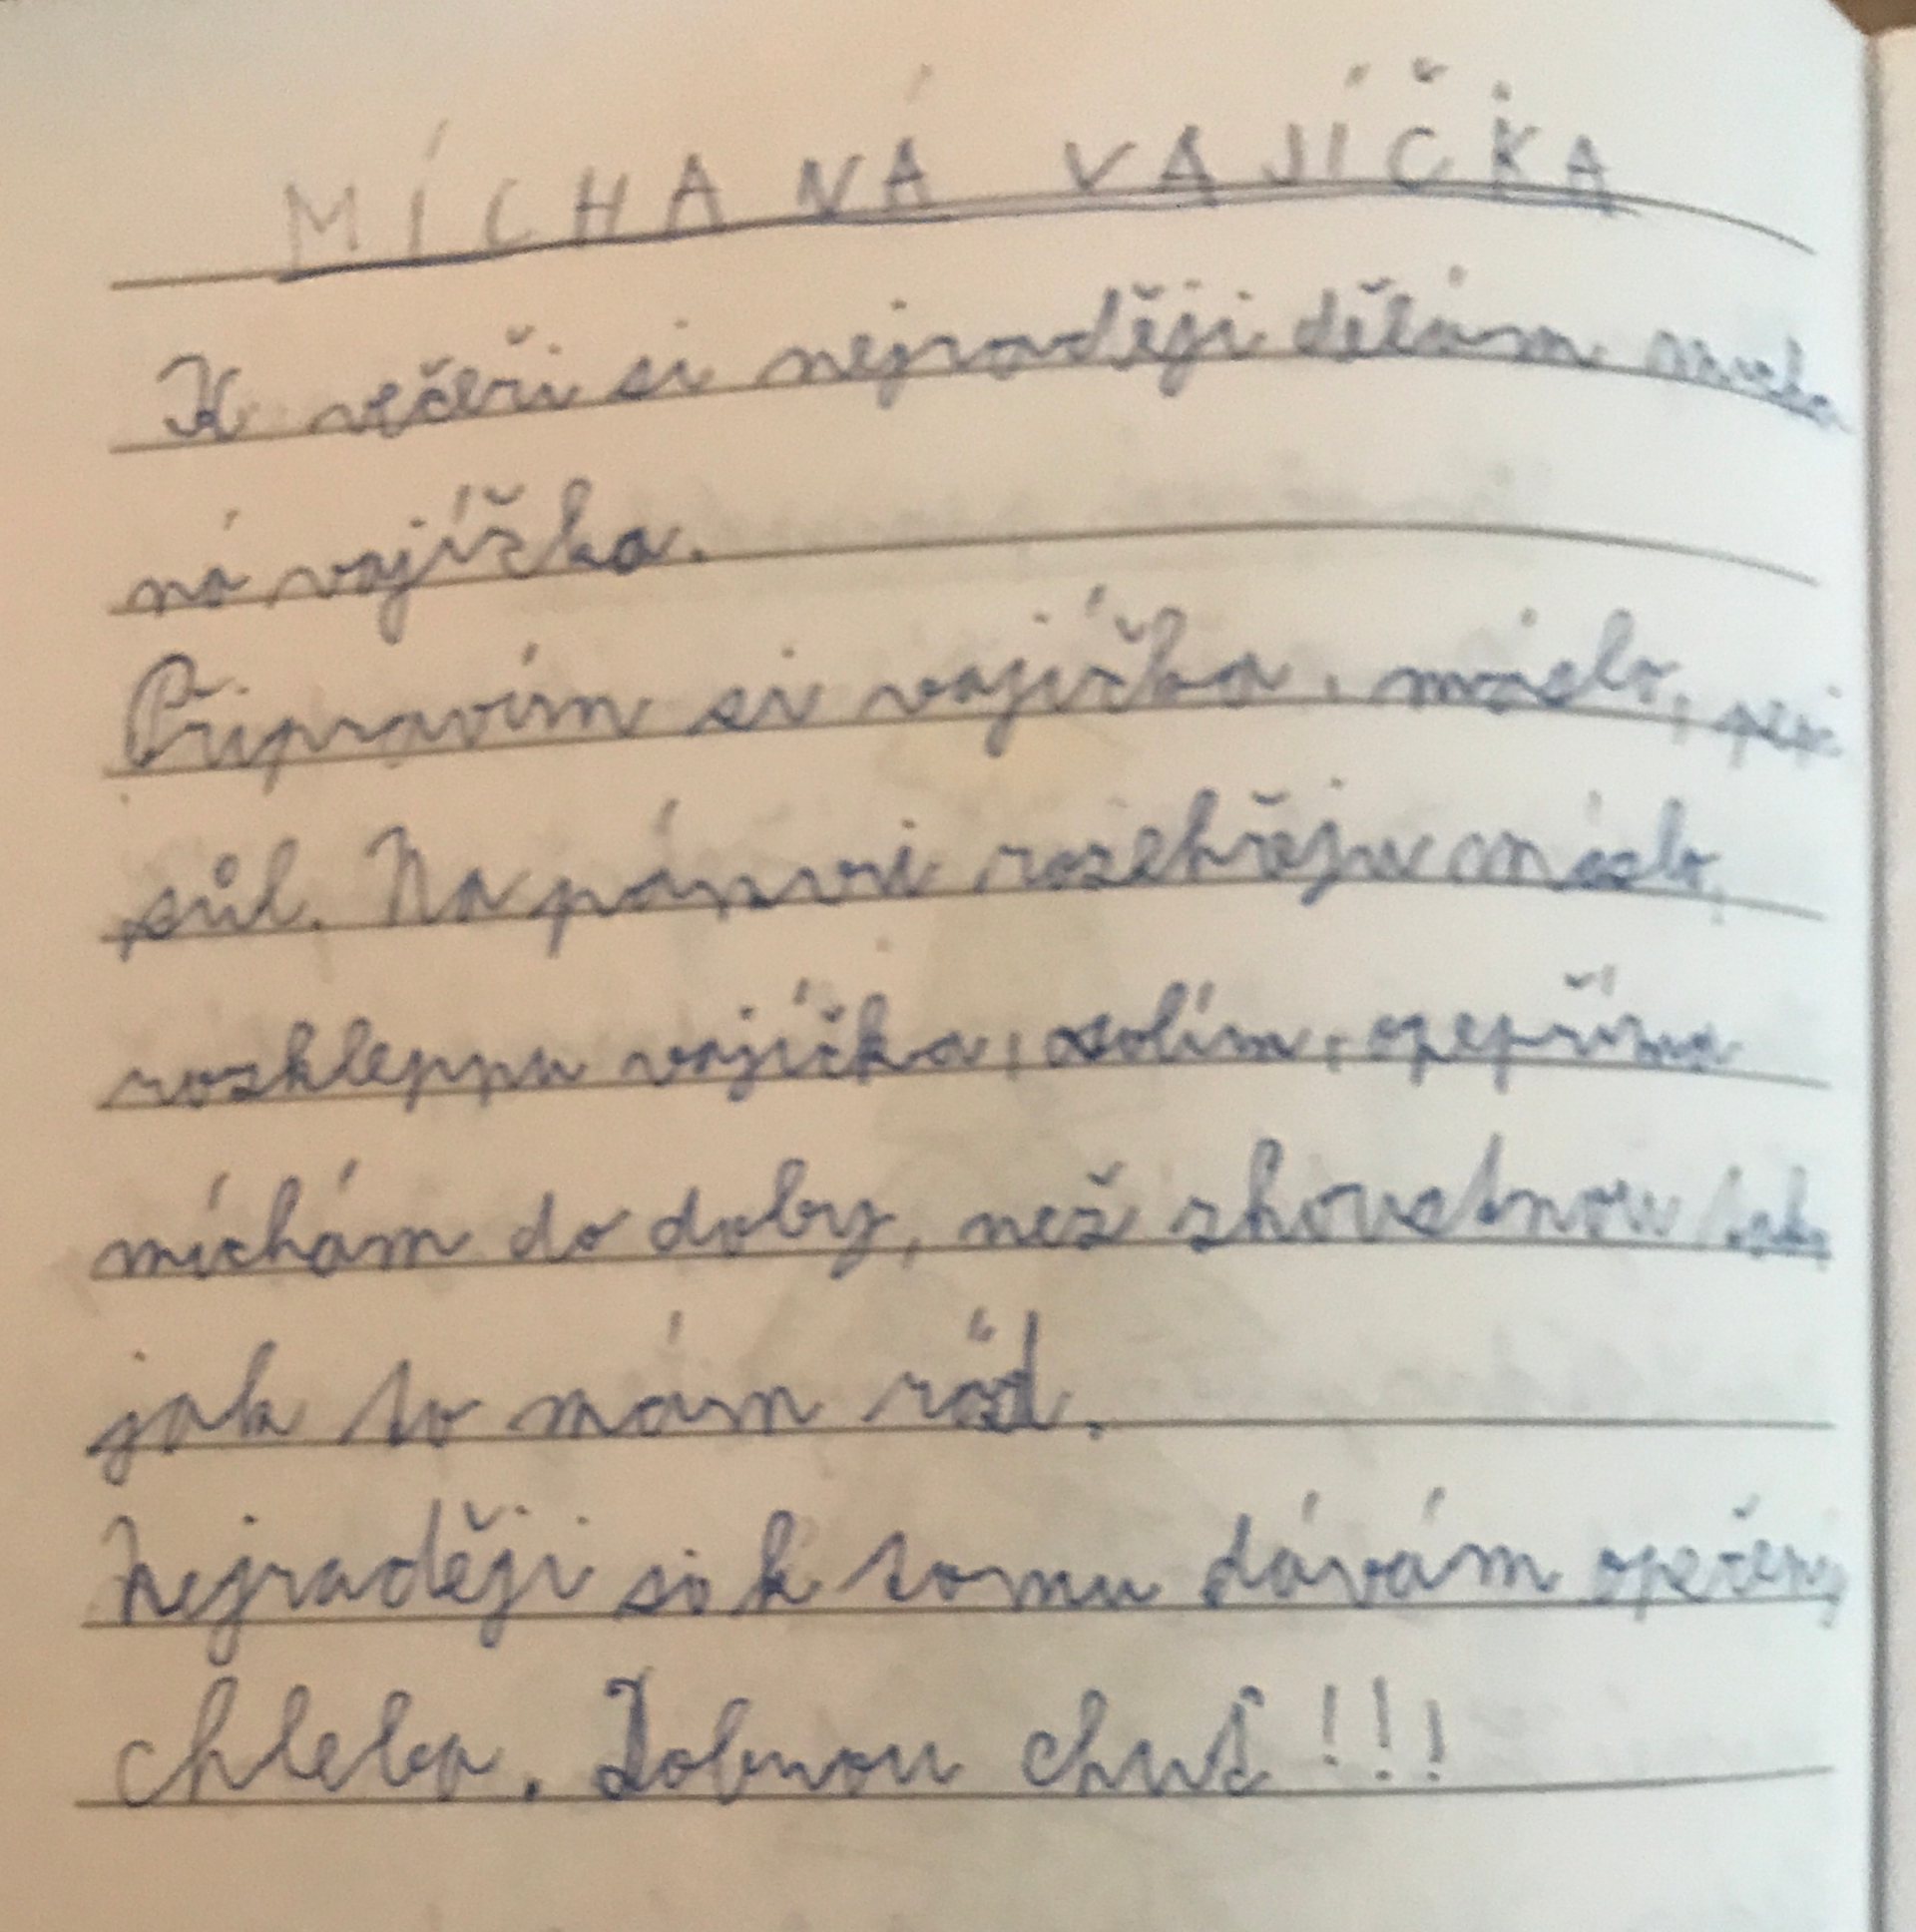 MÍCHANÁ VAJÍČKA
K večeři si nejraději dělám mícha
ná vajíčka.
Připravím si vajíčka, máslo, pepř
sůl. Na pánvi rozehřeju máslo,
rozkleppu vajíčka, solím, opepřím a
míchám do doby, než zhoustnou tak,
jak to mám rád.
Nejraději si k tomu dávám opečený
chleba. Dobrou chuť!!!